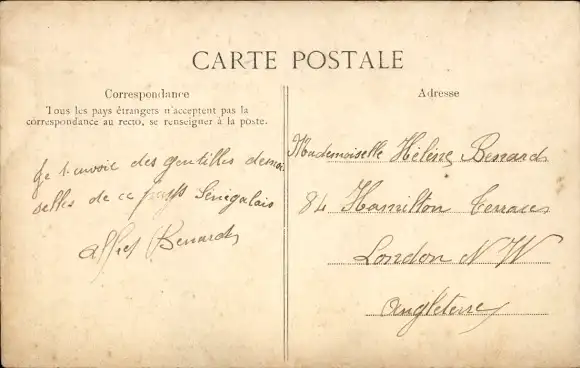 CARTE POSTALE
Correspondance
Tous les pays étrangers n'acceptent pas la
correspondance au recto, se renseigner à la poste.
Je t'envoie des gentilles demoi
selles de ce pays Sénégalais
Benard
Adresse
Mademoiselle Hélène Benard
84 Hamilton Terrace
London N W
Angleterre